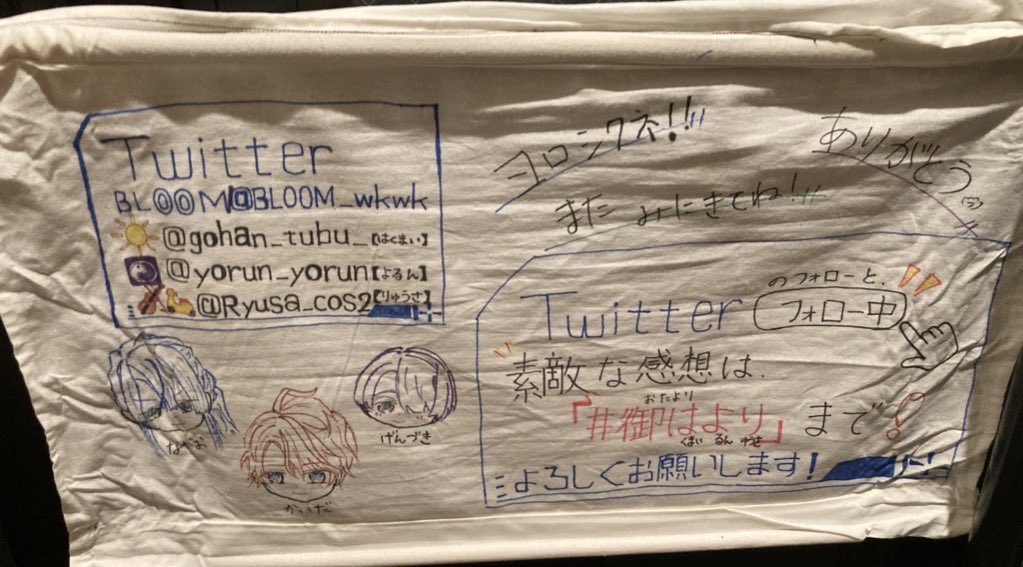 Twitter
BLOOM@BLOOM_wkwk
@gohan_tubu_【はくまい】
@yorun_yorun【よるん】
@Ryusa_cos2【りゅうさ】
ながお
かいだ
げんづき
ヨロシクネ!!
また みにきてね!
ありがとう
のフォローと、
Twitter フォロー中
素敵な感想は、
おたより
「#御はより」まで
くまい るん ゆさ
よろしくお願いします!